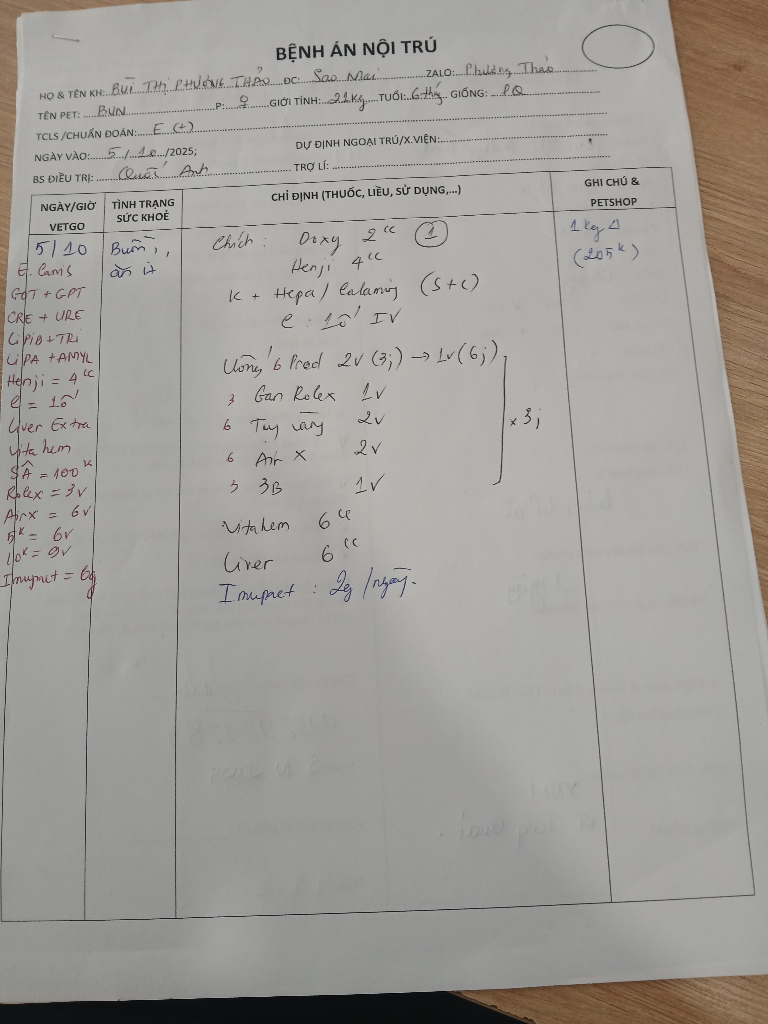 BỆNH ÁN NỘI TRÚ
HỌ & TÊN KH: BÙI THỊ PHƯƠNG THẢO ĐC: Sao Mai ZALO: Phương Thảo
TÊN PET: BUN P: ♀ GIỚI TÍNH: 21kg TUỔI: 6 thg GIỐNG: PQ
TCLS /CHUẨN ĐOÁN: E (+)
NGÀY VÀO: 5/10/2025; DỰ ĐỊNH NGOẠI TRÚ/X.VIỆN:
BS ĐIỀU TRỊ: Quốc Anh TRỢ LÍ:
NGÀY/GIỜ VETGO
TÌNH TRẠNG SỨC KHOẺ
CHỈ ĐỊNH (THUỐC, LIỀU, SỬ DỤNG,...)
GHI CHÚ & PETSHOP
5/10
E. Canis
GOT + GPT
CRE + URE
LiPiD + TRi
LiPA + AMYL
Henji = 4cc
C = 1ố
Liver Extra
Vitahem
SÂ = 100k
Rolex = 3v
Airx = 6v
5k = 6v
10k = 9v
Imupret = 6g
Buồn,
ăn ít
Chích: Doxy 2cc ①
Henji 4cc
K + Hepa / Calaming (S+C)
C: 1ố IV
Uống 6 Pred 2v (3j) → 1v (6j)
3 Gan Rolex 1v
6 Tụy vàng 2v
6 Air X 2v
3 3B 1v
x 3j
Vitahem 6cc
Liver 6cc
Imupret: 2g /ngày.
1kg Δ
(205k)